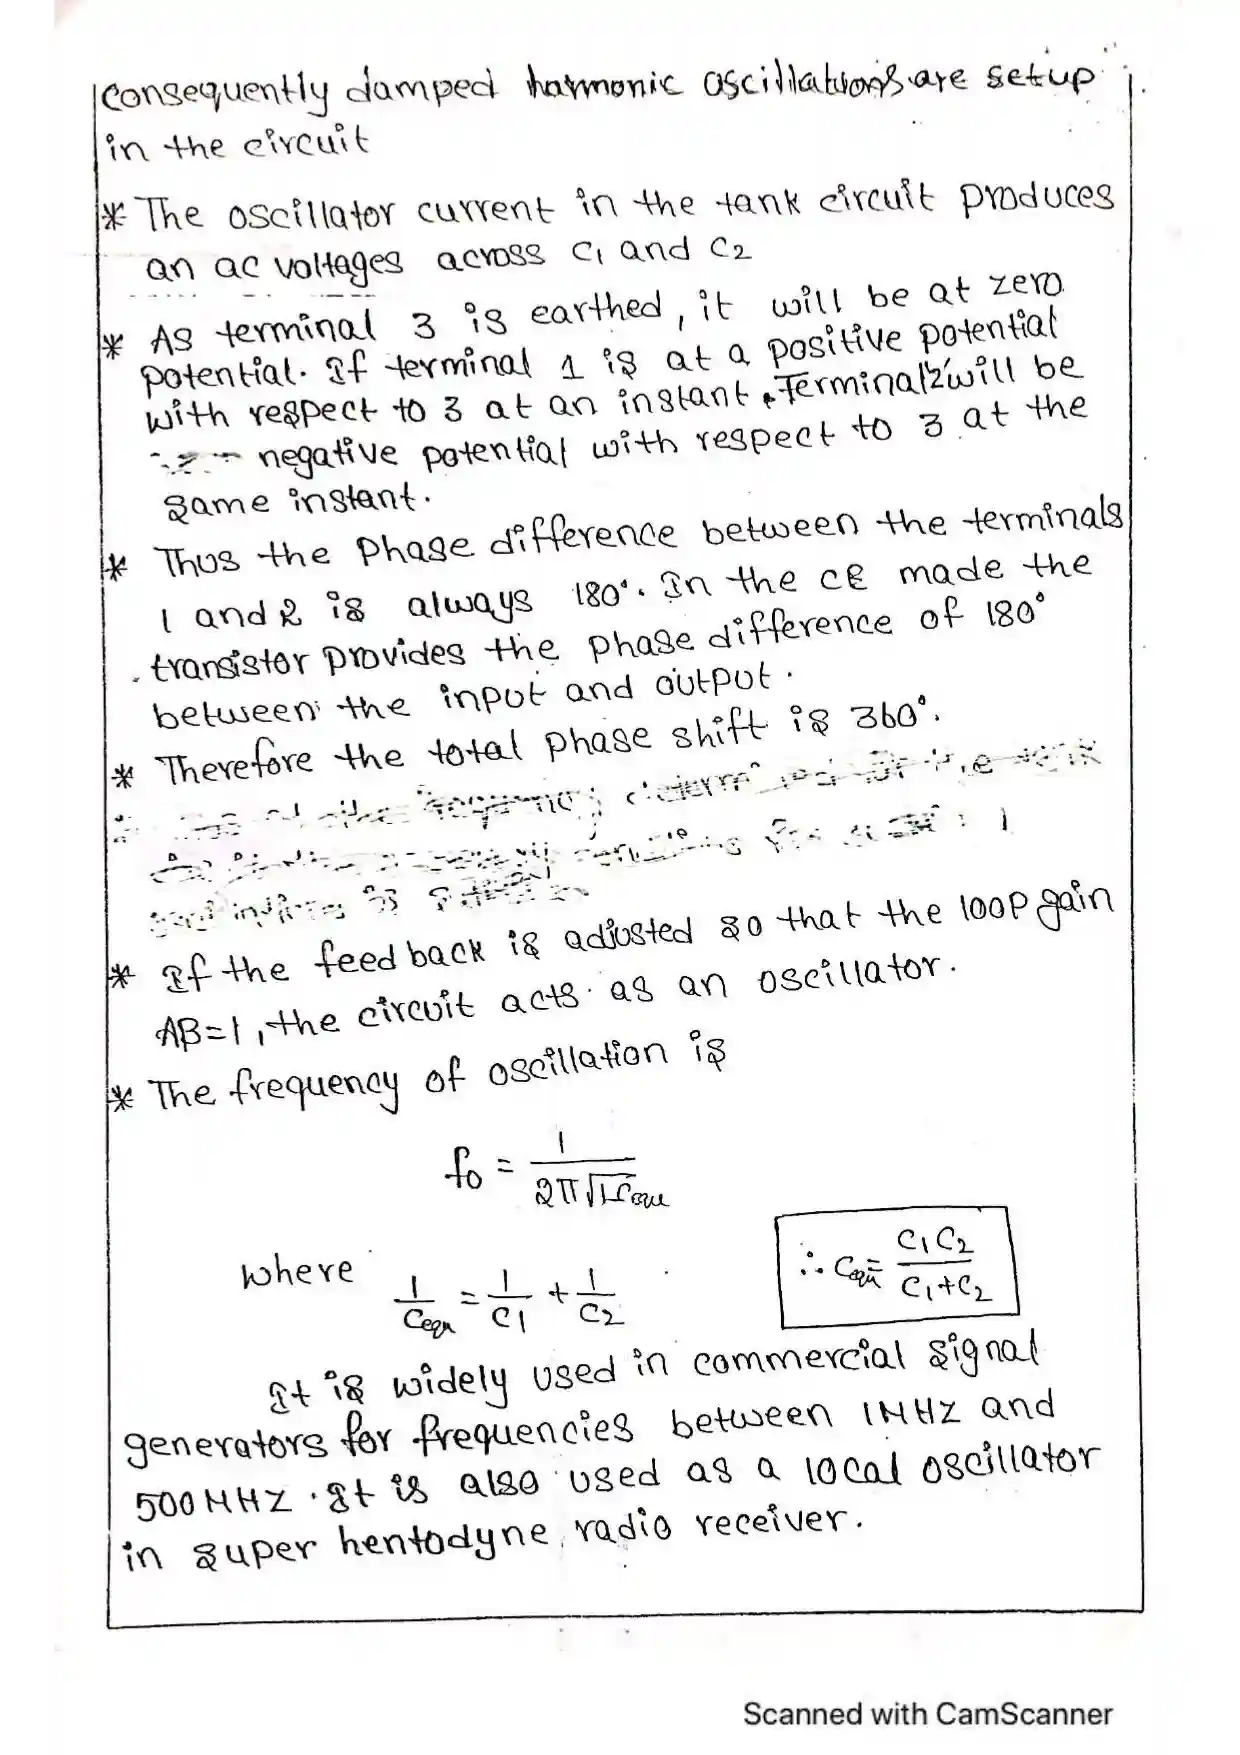 consequently damped harmonic oscillations are setup
in the circuit
* The oscillator current in the tank circuit produces
an ac voltages across C1 and C2
* As terminal 3 is earthed, it will be at zero
potential. If terminal 1 is at a positive potential
with respect to 3 at an instant, Terminal '2' will be
negative potential with respect to 3 at the
same instant.
* Thus the phase difference between the terminals
1 and 2 is always 180°. In the CE made the
transistor provides the phase difference of 180°
between the input and output.
* Therefore the total phase shift is 360°.
* If the feed back is adjusted so that the loop gain
AB=1, the circuit acts as an oscillator.
* The frequency of oscillation is
fo = 1 / 2π√LCequ
where 1/Cequ = 1/C1 + 1/C2
∴ Cequ = C1C2 / C1+C2
It is widely used in commercial signal
generators for frequencies between 1MHZ and
500MHZ. It is also used as a local oscillator
in super hentodyne radio receiver.
Scanned with CamScanner